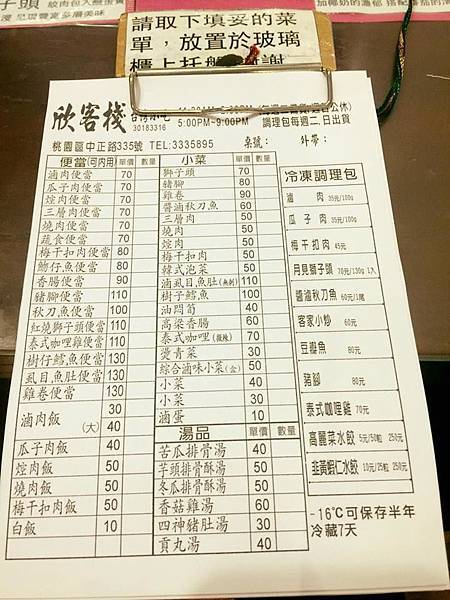 子頭
請取下填妥的菜
單，放置於玻璃
欣客棧 台灣小吃
30183316
5:00PM-9:00PM
調理包每週二、日出貨
桃園區中正路335號 TEL:3335895 桌號： 外帶：
便當(可內用) 單價 數量
滷肉便當 70
瓜子肉便當 70
焢肉便當 70
三層肉便當 70
燒肉便當 70
蔬食便當 70
梅干扣肉便當 80
魩仔魚便當 80
香腸便當 90
豬腳便當 110
秋刀魚便當 100
紅燒獅子頭便當 110
泰式咖哩雞便當 110
樹仔鱈魚便當 130
虱目魚肚便當 130
雞卷便當 130
滷肉飯 30
(大) 40
瓜子肉飯 40
焢肉飯 50
燒肉飯 50
梅干扣肉飯 50
白飯 10
小菜 單價 數量
獅子頭 70
豬腳 80
雞卷 90
醬滷秋刀魚 60
三層肉 50
燒肉 50
焢肉 50
梅干扣肉 50
韓式泡菜 50
滷虱目魚肚(無刺) 110
樹子鱈魚 100
油悶筍 40
高梁香腸 60
泰式咖哩(微辣) 70
燙青菜 30
綜合滷味小菜(盒) 50
小菜 40
小菜 30
滷蛋 10
湯品 單價 數量
苦瓜排骨湯 40
芋頭排骨酥湯 50
冬瓜排骨酥湯 50
香菇雞湯 60
四神豬肚湯 30
貢丸湯 40
冷凍調理包
滷肉 35元/100g
瓜子肉 35元/100g
梅干扣肉 45元
月見獅子頭 70元/130g 1入
醬滷秋刀魚 60元/1尾
客家小炒 60元
豆瓣魚 80元
豬腳 80元
泰式咖哩雞 70元
高麗菜水餃 5元/50粒 250元
韭黃蝦仁水餃 10元/25粒 250元
-16℃可保存半年
冷藏7天